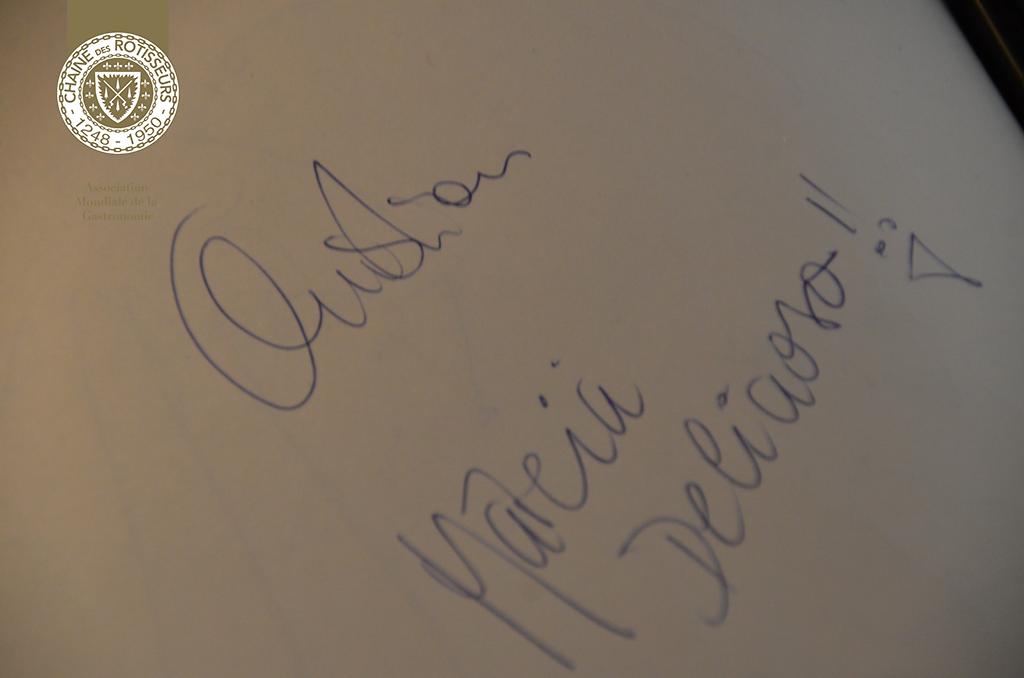 CHAINE DES ROTISSEURS
1248 - 1950
Association
Mondiale de la
Gastronomie
Cristian
Maria
Delicioso!!